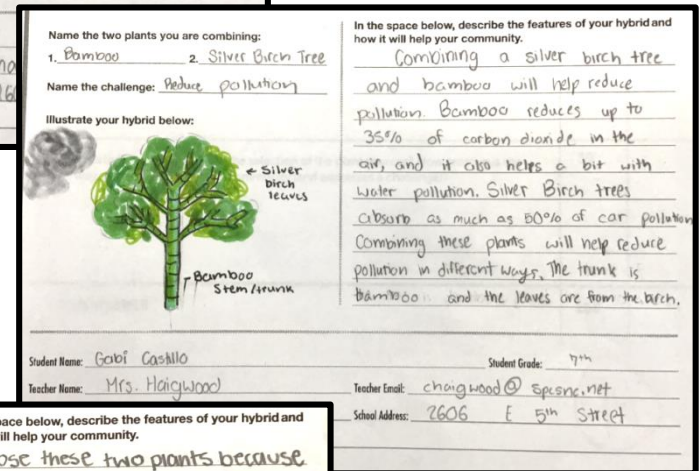 Name the two plants you are combining:
1. Bamboo 2. Silver Birch Tree
Name the challenge: Reduce pollution
Illustrate your hybrid below:
← Silver
birch
leaves
Bamboo
Stem/trunk
In the space below, describe the features of your hybrid and
how it will help your community.
Combining a silver birch tree
and bamboo will help reduce
pollution. Bamboo reduces up to
35% of carbon dioxide in the
air, and it also helps a bit with
water pollution. Silver Birch trees
absorb as much as 50% of car pollution
Combining these plants will help reduce
pollution in different ways. The trunk is
bamboo and the leaves are from the birch.
Student Name: Gabi Castillo
Student Grade: 7th
Teacher Name: Mrs. Haigwood
Teacher Email: chaigwood@spcsnc.net
School Address: 2606 E 5th Street
below, describe the features of your hybrid and
these two plants because